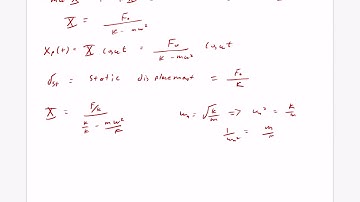 X = F₀ / (k - mω²)
xₚ(t) = X cos ωt = F₀ / (k - mω²) cos ωt
δst = static displacement = F₀ / k
X = (F/k) / (k/k - mω²/k)
ωₙ = √(k/m) => ωₙ² = k/m
1/ωₙ² = m/k